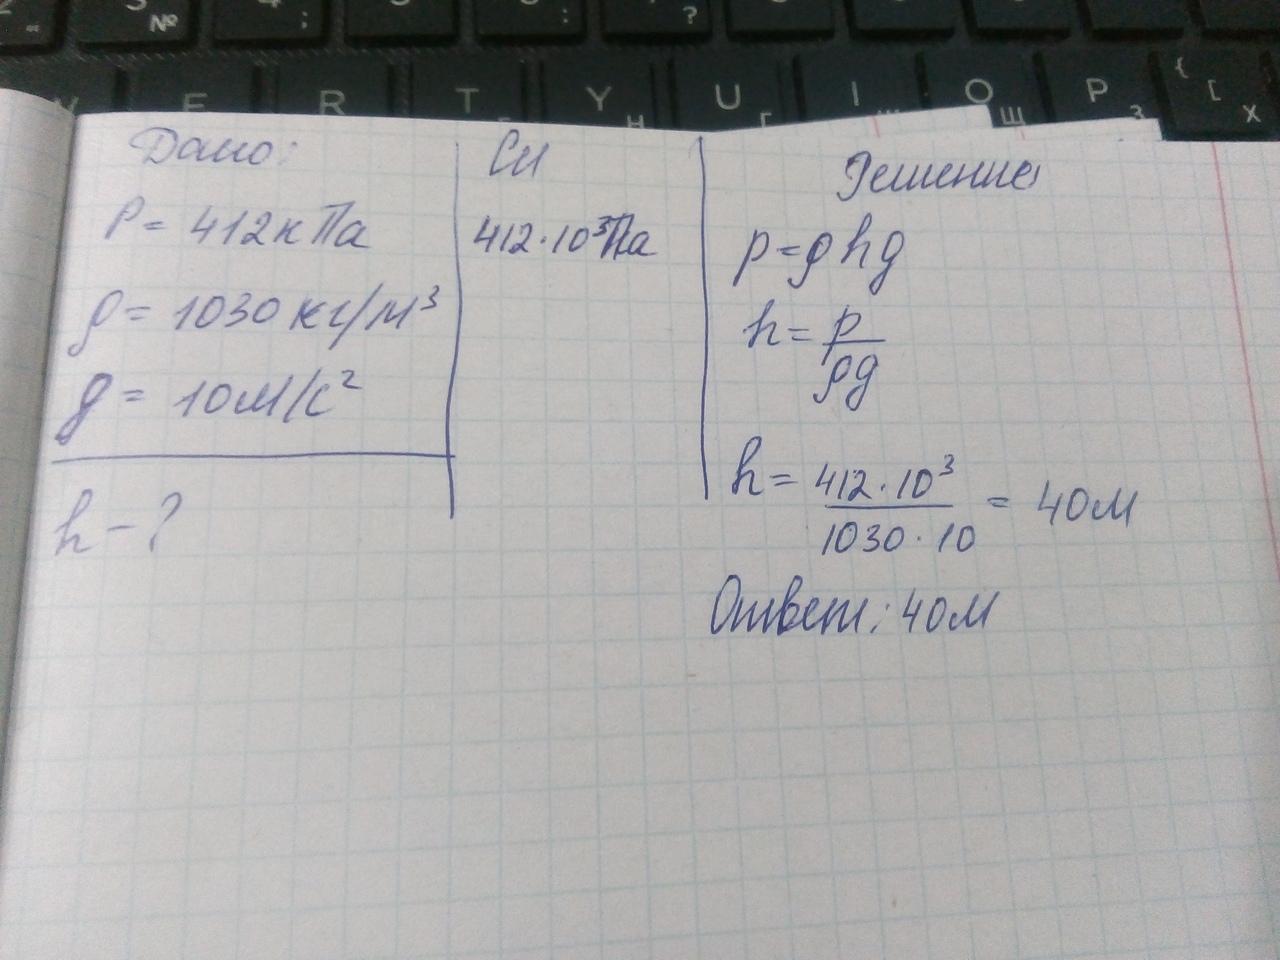 №
;
:
?
E R T Y U I O P { [
Н Г Ш Щ З Х
Дано:
P = 412 кПа
ρ = 1030 кг/м³
g = 10 м/с²
h - ?
Си
412·10³Па
Решение
p = ρhg
h = p/ρg
h = 412·10³/1030·10 = 40м
Ответ: 40м